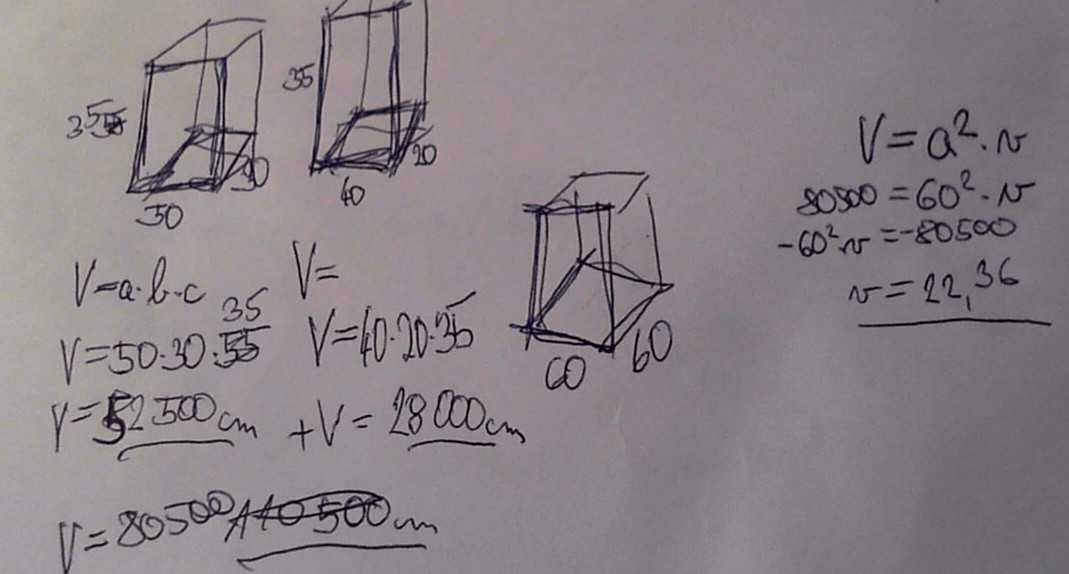 35
30
50
35
20
40
60
60
V=a·b·c
35
V=50·30·55
V=52500cm
V=
V=40·20·35
+V=28000cm
V=80500 110500cm
V=a²·v
80500=60²·v
-60²·v=-80500
v=22,36